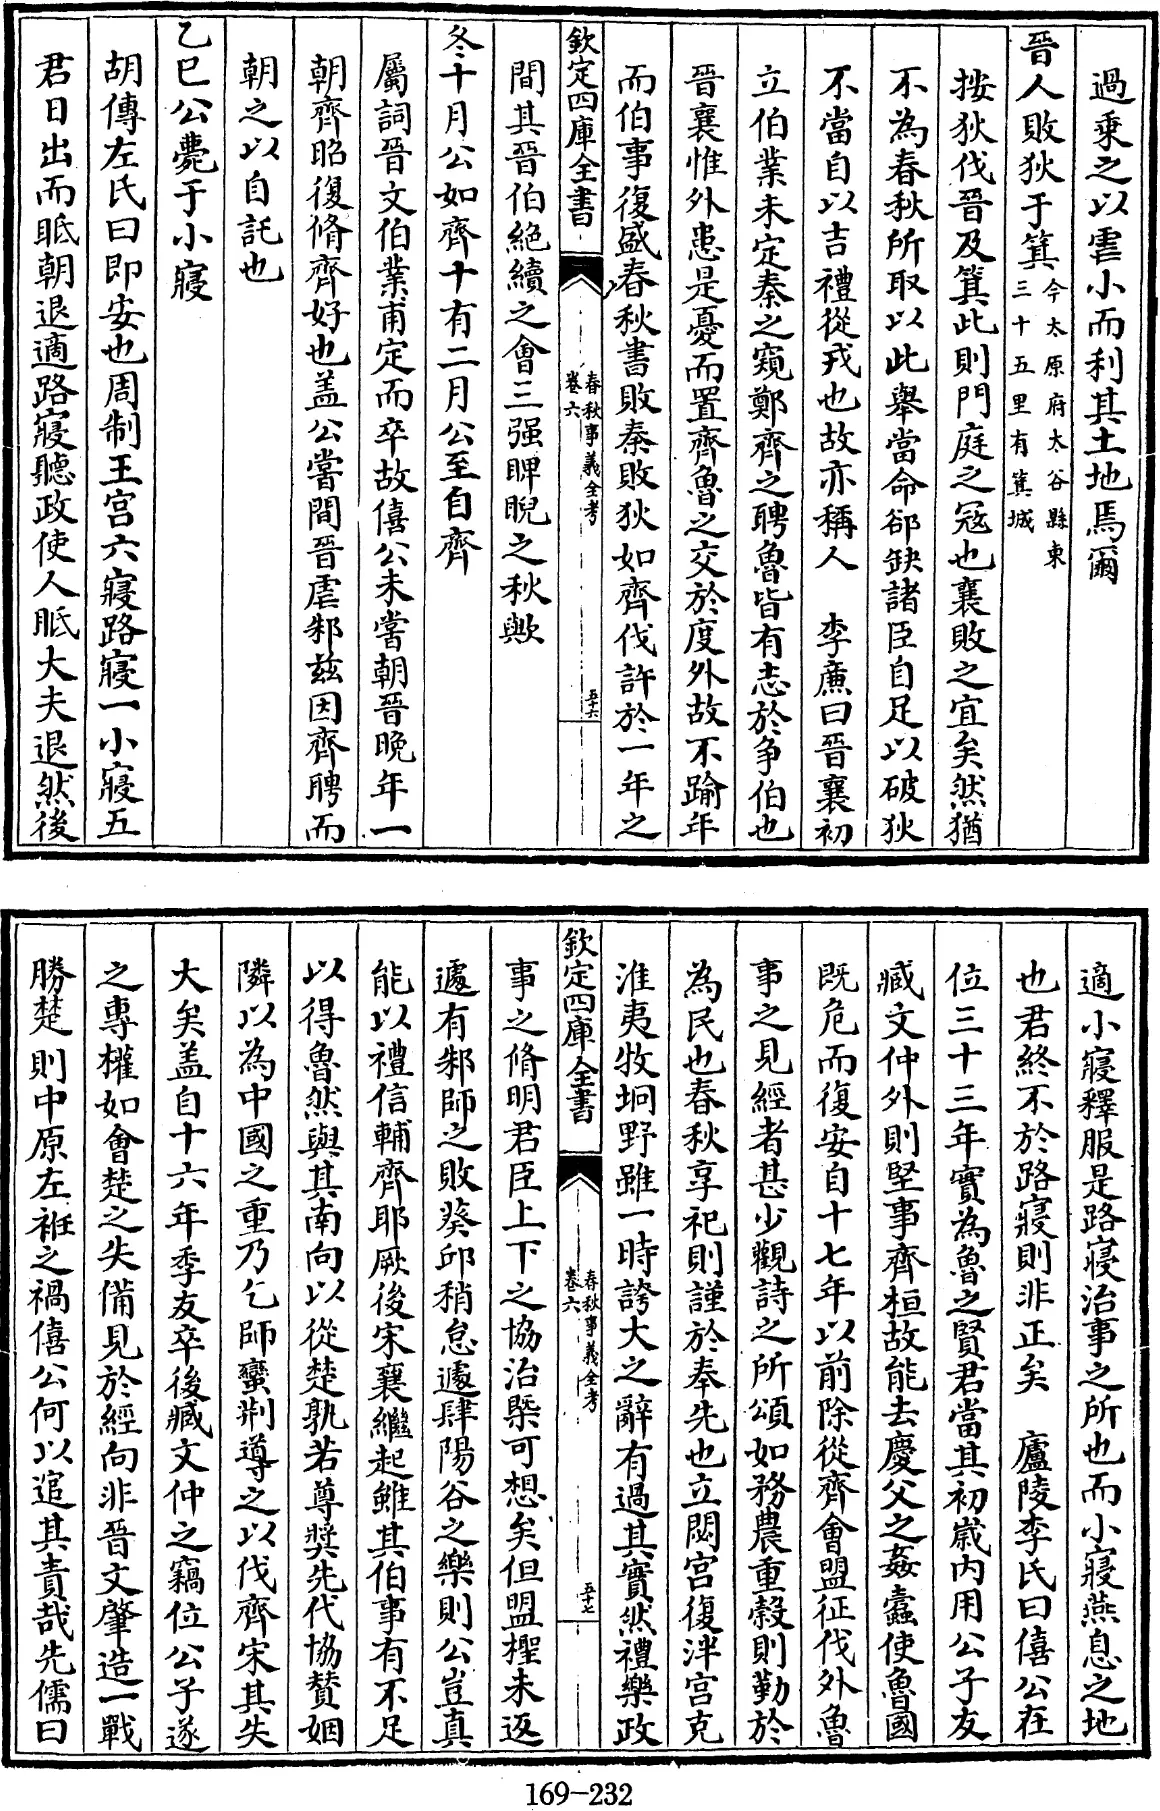 過乗之以虐小而利其土地焉爾
晉人敗狄于箕今太原府太谷縣東三十五里有箕城
按狄伐晉及箕此則門庭之冦也襄敗之宜矣然猶
不為春秋所取以此舉當命郤缺諸臣自足以破狄
不當自以吉禮從戎也故亦稱人　李廉曰晉襄初
立伯業未定秦之窺鄭齊之聘魯皆有志於争伯也
晉襄惟外患是憂而置齊魯之交於度外故不踰年
而伯事復盛春秋書敗秦敗狄如齊伐許於一年之
欽定四庫全書
春秋事義全考
卷六
五十六
間其晉伯絶續之會三强睥睨之秋歟
冬十月公如齊十有二月公至自齊
屬詞晉文伯業甫定而卒故僖公未嘗朝晉晚年一
朝齊昭復脩齊好也盖公嘗間晉虐邾兹因齊聘而
朝之以自託也
乙巳公薨于小寢
胡傳左氏曰即安也周制王宫六寢路寢一小寢五
君日出而眡朝退適路寢聽政使人眡大夫退然後
適小寢釋服是路寢治事之所也而小寢燕息之地
也君終不於路寢則非正矣　廬陵李氏曰僖公在
位三十三年實為魯之賢君當其初歲内用公子友
臧文仲外則堅事齊桓故能去慶父之姦蠧使魯國
既危而復安自十七年以前除從齊會盟征伐外魯
事之見經者甚少觀詩之所頌如務農重榖則勤於
為民也春秋享祀則謹於奉先也立閟宫復泮宫克
淮夷牧坰野雖一時誇大之辭有過其實然禮樂政
欽定四庫全書
春秋事義全考
卷六
五十七
事之脩明君臣上下之協治槩可想矣但盟檉未返
遽有邾師之敗葵邱稍怠遽肆陽谷之樂則公豈真
能以禮信輔齊耶厥後宋襄繼起雖其伯事有不足
以得魯然與其南向以從楚孰若尊奬先代協賛姻
隣以為中國之重乃乞師蠻荆導之以伐齊宋其失
大矣盖自十六年季友卒後臧文仲之竊位公子遂
之專權如會楚之失備見於經向非晉文肇造一戰
勝楚則中原左袵之禍僖公何以追其責哉先儒曰
169-232